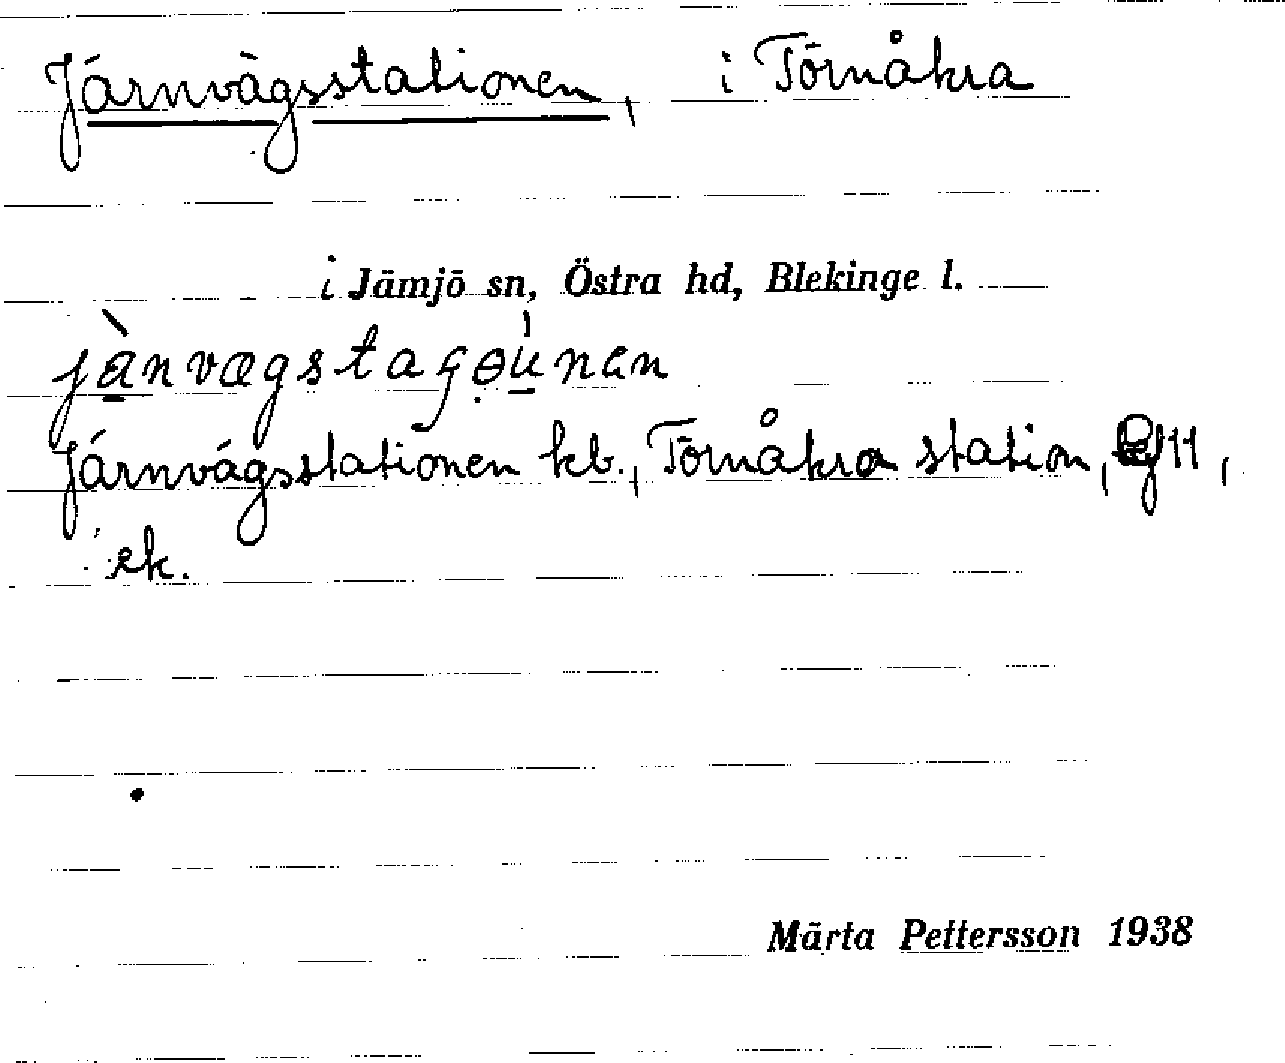 Järnvägsstationen, i Törnåkra
i Jämjö sn, Östra hd, Blekinge l.
Järnvägsstationen kb., Törnåkra station, 11,
ek.
Märta Pettersson 1938